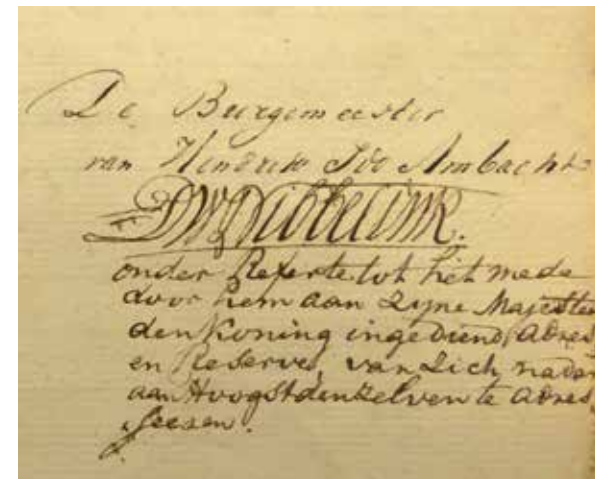 De Burgemeester
van Hendrik Ido Ambacht
Dibbelink.
onder Referte tot het mede
door hem aan Zyne Majestei
den Koning ingediend, adres,
en Reserve, van Zich nader
aan Hoogstdenzelven te adres
seeren.